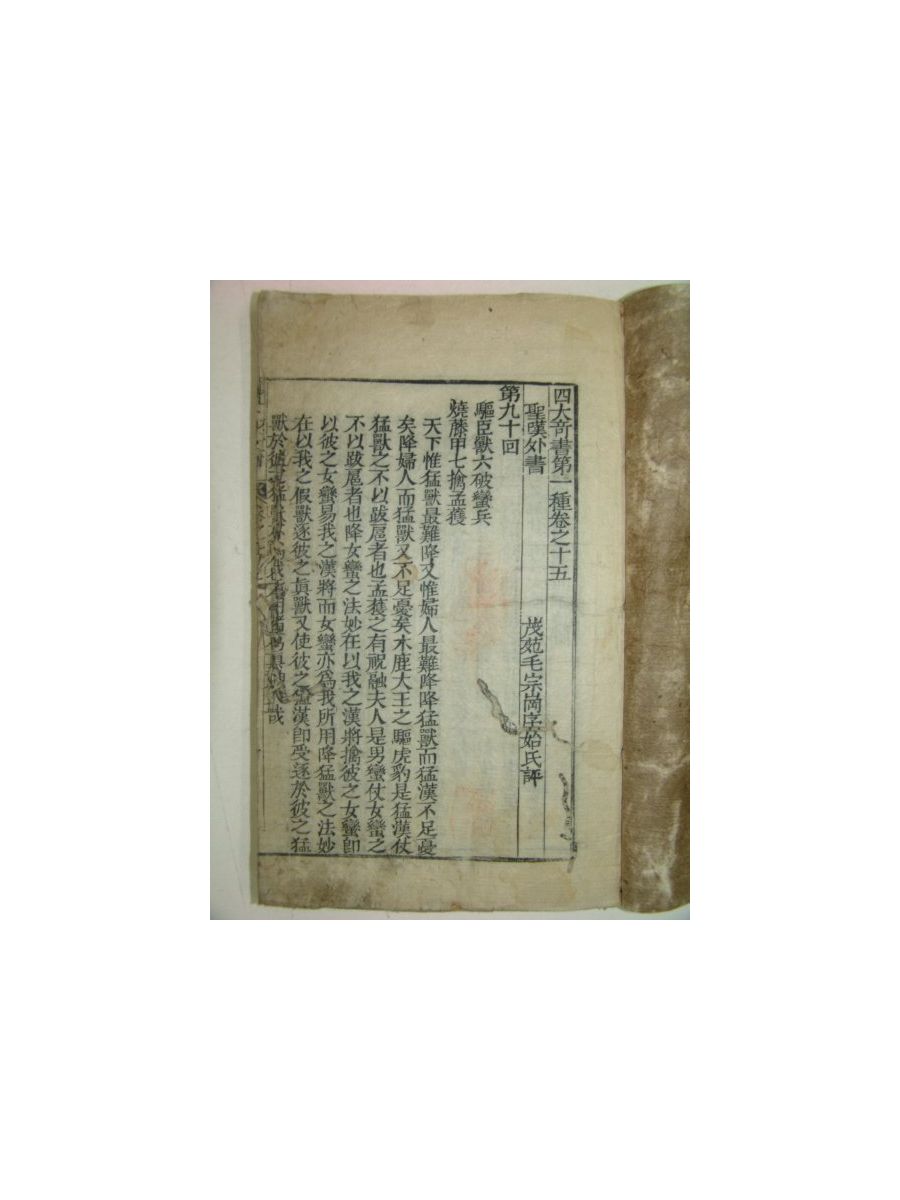 四大奇書第一種卷之十五
聖嘆外書
茂苑毛宗崗序始氏評
第九十回
驅巨獸六破蠻兵
燒藤甲七擒孟獲
天下惟猛獸最難降又惟婦人最難降降猛獸而猛漢不足憂
矣降婦人而猛獸又不足憂矣木鹿大王之驅虎豹是猛漢仗
猛獸之不以跋扈者也孟獲之有祝融夫人是男蠻仗女蠻之
不以跋扈者也降女蠻之法妙在以我之漢將擒彼之女蠻卽
以彼之女蠻易我之漢將而女蠻亦爲我所用降猛獸之法妙
在以我之假獸逐彼之眞獸又使彼之蠻漢卽受逐於彼之猛
獸於彼